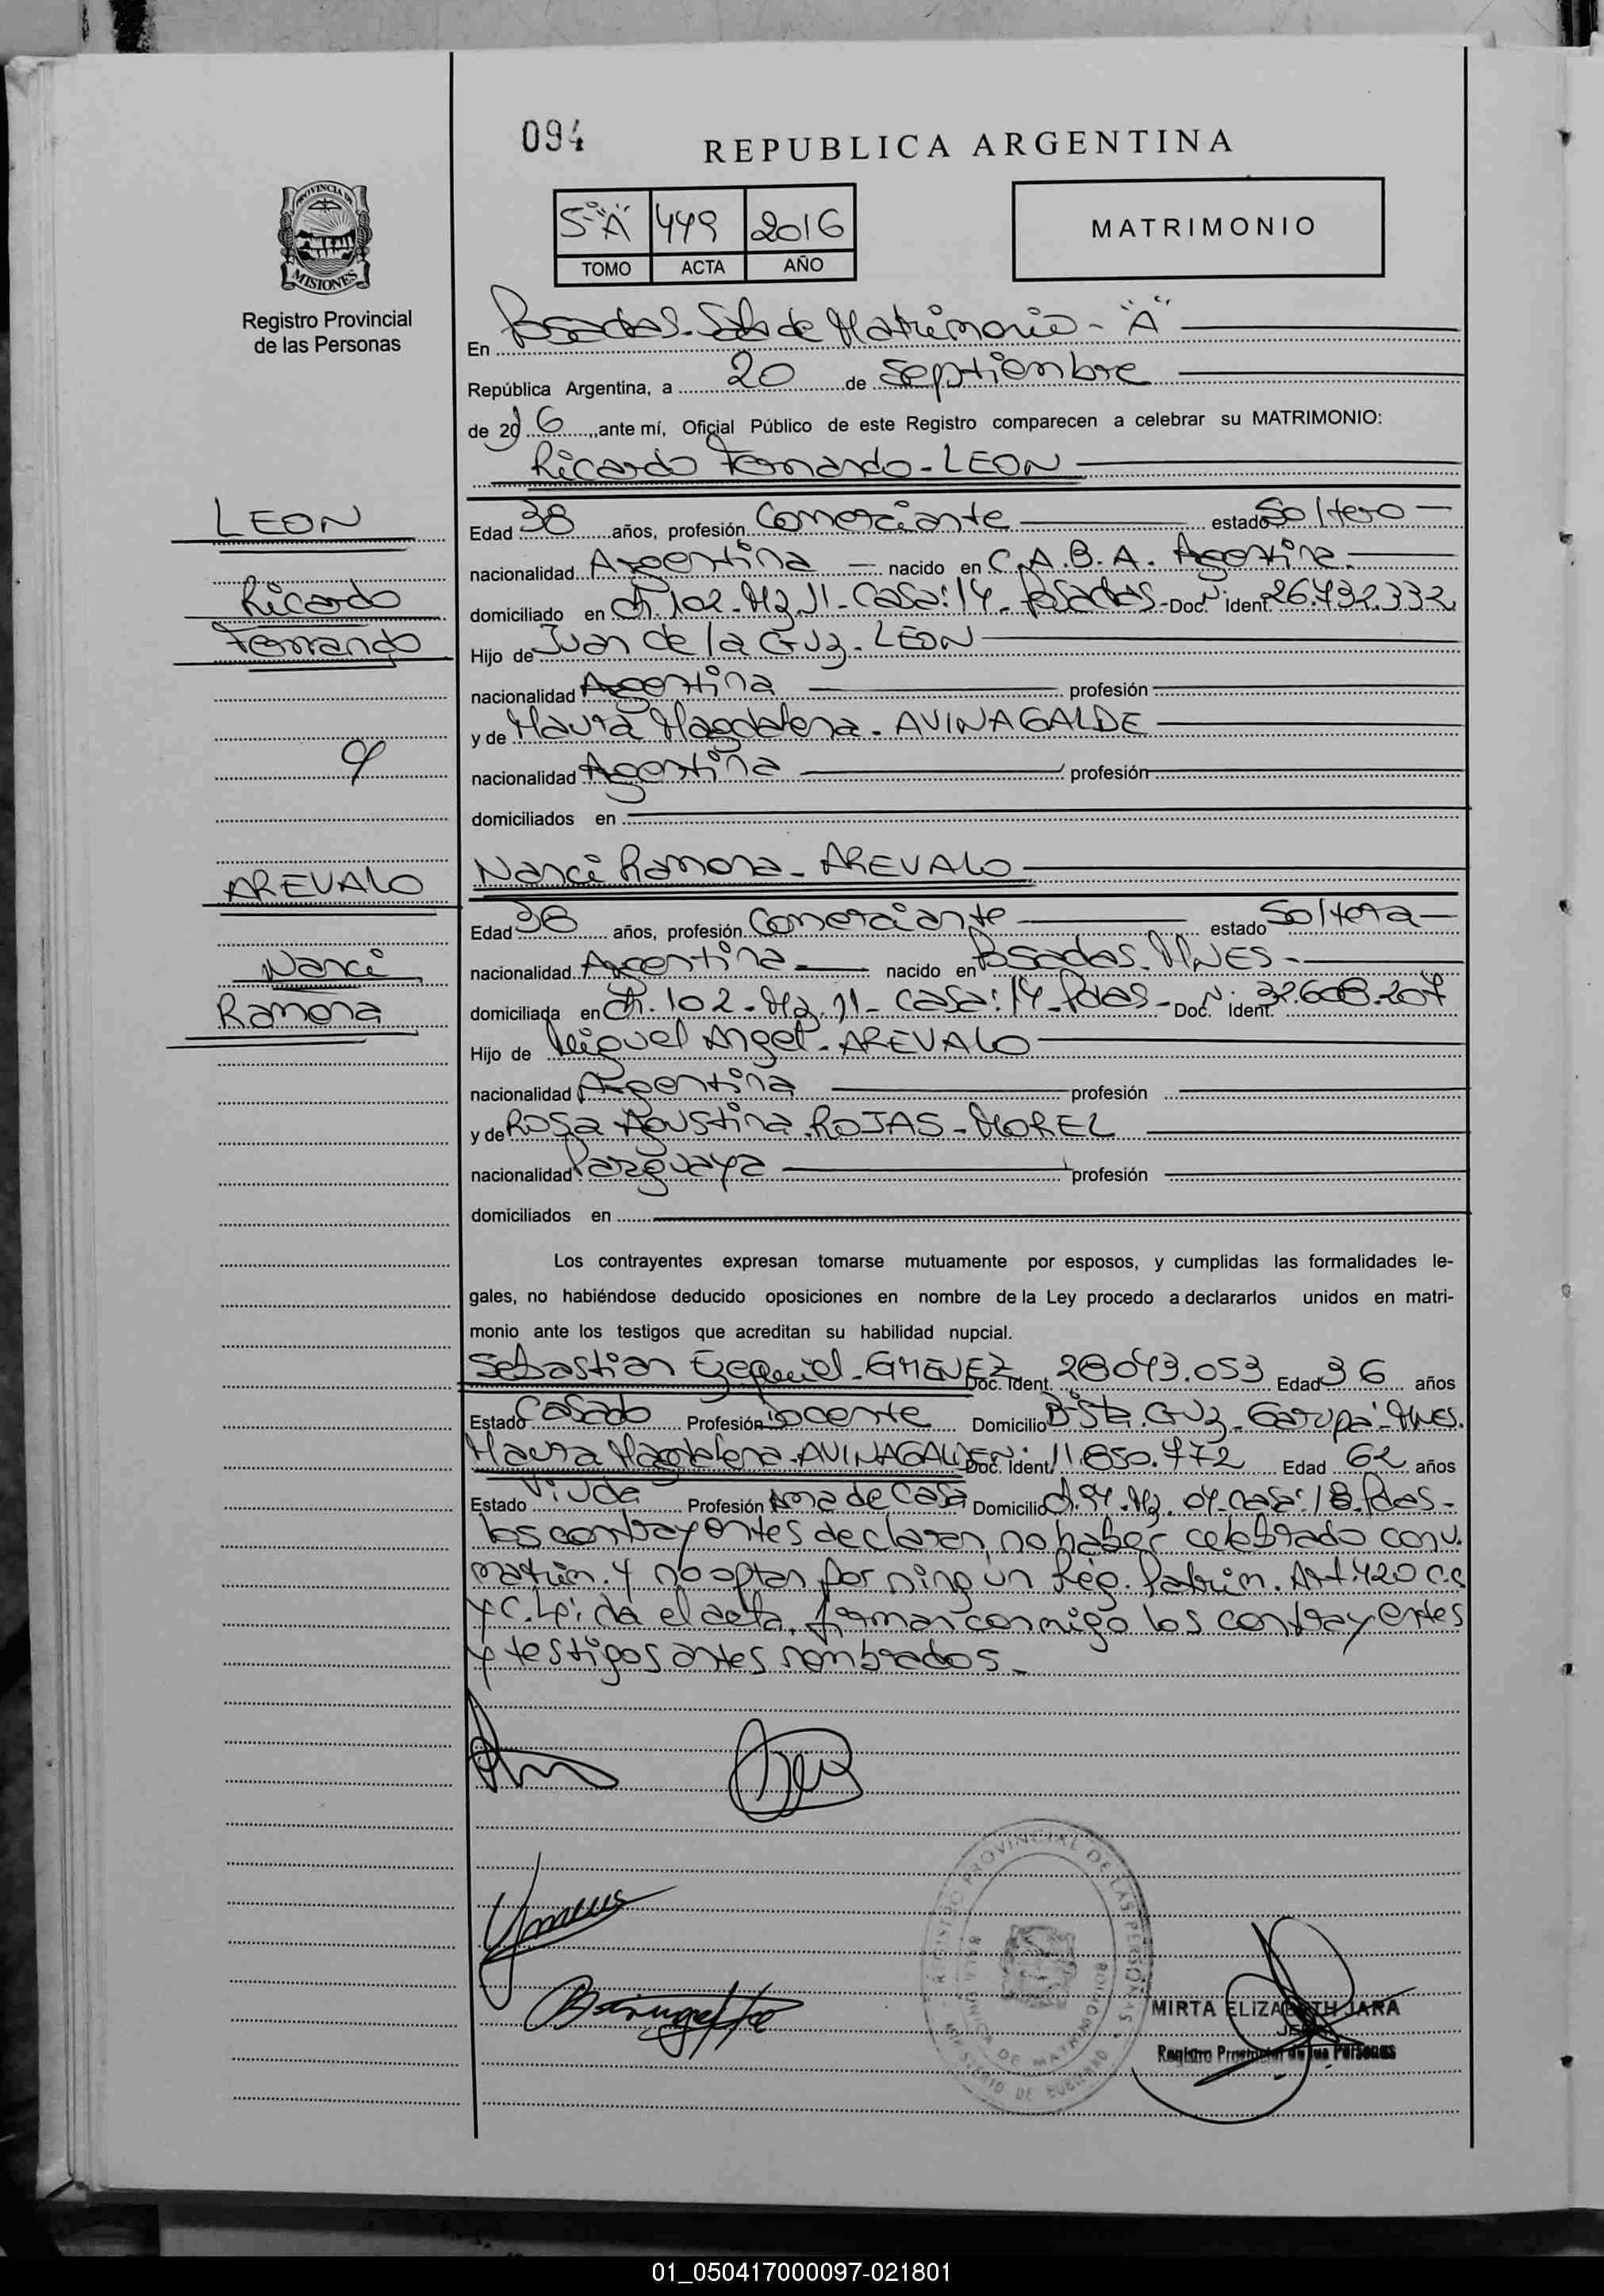 094
REPUBLICA ARGENTINA
5° "A" 449 2016
TOMO ACTA AÑO
MATRIMONIO
PROVINCIA DE
MISIONES
Registro Provincial
de las Personas
En Posadas. Sala de Matrimonio - "A"
República Argentina, a 20 de Septiembre
de 2016, ante mí, Oficial Público de este Registro comparecen a celebrar su MATRIMONIO:
Ricardo Fernando - LEON
LEON
Ricardo
Fernando
Edad 38 años, profesión Comerciante estado Soltero
nacionalidad Argentina nacido en C.A.B.A. Argentina.
domiciliado en Ch. 102 - Mz. 11 - Casa: 14 - Posadas - Doc. N: Ident. 26.732.332
Hijo de Juan de la Cruz - LEON
nacionalidad Argentina profesión
y de Maura Magdalena - AVINAGALDE
nacionalidad Argentina profesión
domiciliados en
Nanci Ramona - AREVALO
AREVALO
Nanci
Ramona
Edad 38 años, profesión Comerciante estado Soltera
nacionalidad Argentina nacido en Posadas. Mnes -
domiciliada en Ch. 102 - Mz. 11 - Casa: 14 - Pdas - Doc. N: Ident. 32.608.207
Hijo de Miguel Angel - AREVALO
nacionalidad Argentina profesión
y de Rosa Agustina ROJAS - MOREL
nacionalidad Paraguaya profesión
domiciliados en
Los contrayentes expresan tomarse mutuamente por esposos, y cumplidas las formalidades le-
gales, no habiéndose deducido oposiciones en nombre de la Ley procedo a declararlos unidos en matri-
monio ante los testigos que acreditan su habilidad nupcial.
Sebastian Ezequiel - GIMENEZ Doc. Ident. 28.043.053 Edad 36 años
Estado Casado Profesión Docente Domicilio B° Sta. Cruz - Garupá - Mnes.
Maura Magdalena - AVINAGALDE Doc. N: Ident. 11.850.772 Edad 62 años
Estado Viuda Profesión Ama de Casa Domicilio Ch. 94 - Mz. 04 - Casa: 18 - Pdas -
los contrayentes declaran, no haber celebrado conv.
matrim. y no optan por ningun Reg. Patrim. Art. 420 C.C
y C. Leída el acta, firman conmigo los contrayentes
y testigos antes nombrados -
REGISTRO PROVINCIAL DE LAS PERSONAS
MINISTERIO DE GOBIERNO
MIRTA ELIZABETH JARA
JEFA
Registro Provincial de las Personas
01_050417000097-021801